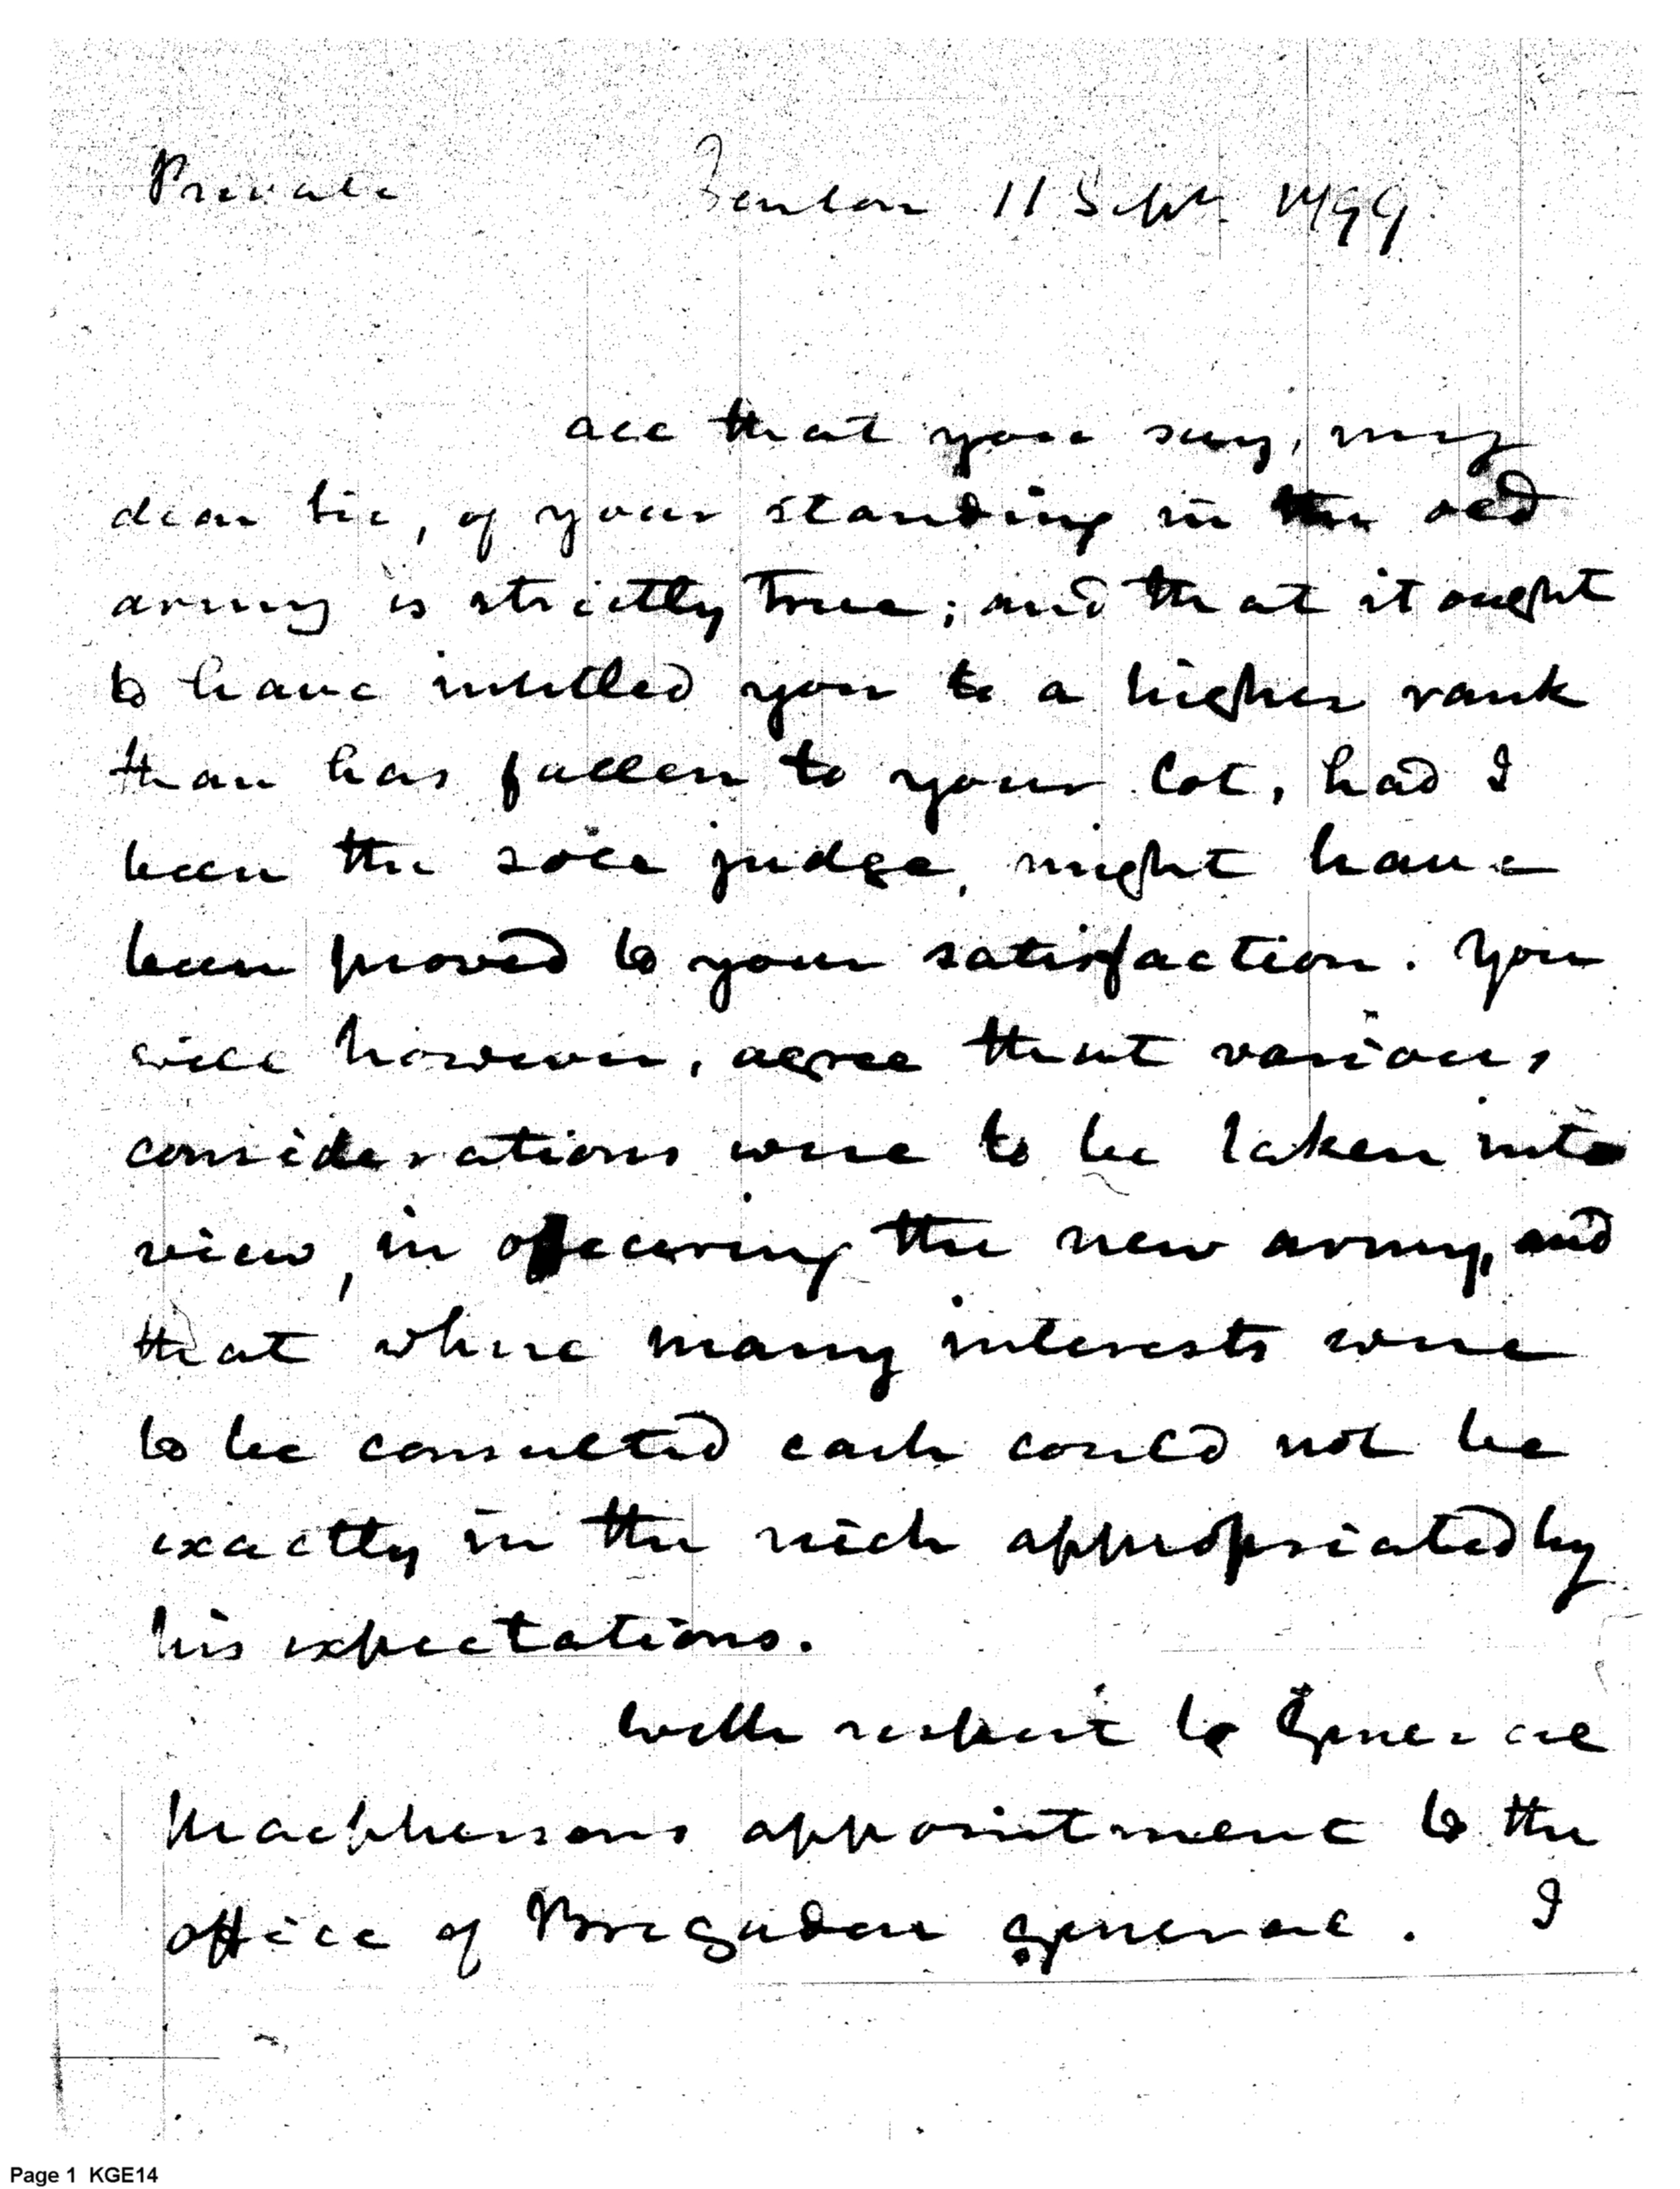 Private Trenton 11 Sept. 1799
all that you say, my
dear Sir, of your standing in the old
army is strictly true; and that it ought
to have intitled you to a higher rank
than has fallen to your lot, had I
been the sole judge, might have
been proved to your satisfaction. You
will however, agree that various
considerations were to be taken into
view, in officering the new army, and
that where many interests were
to be consulted each could not be
exactly in the nich appropriated by
his expectations.
With respect to General
Macphersons appointment to the
office of Brigadier general. I
Page 1 KGE14